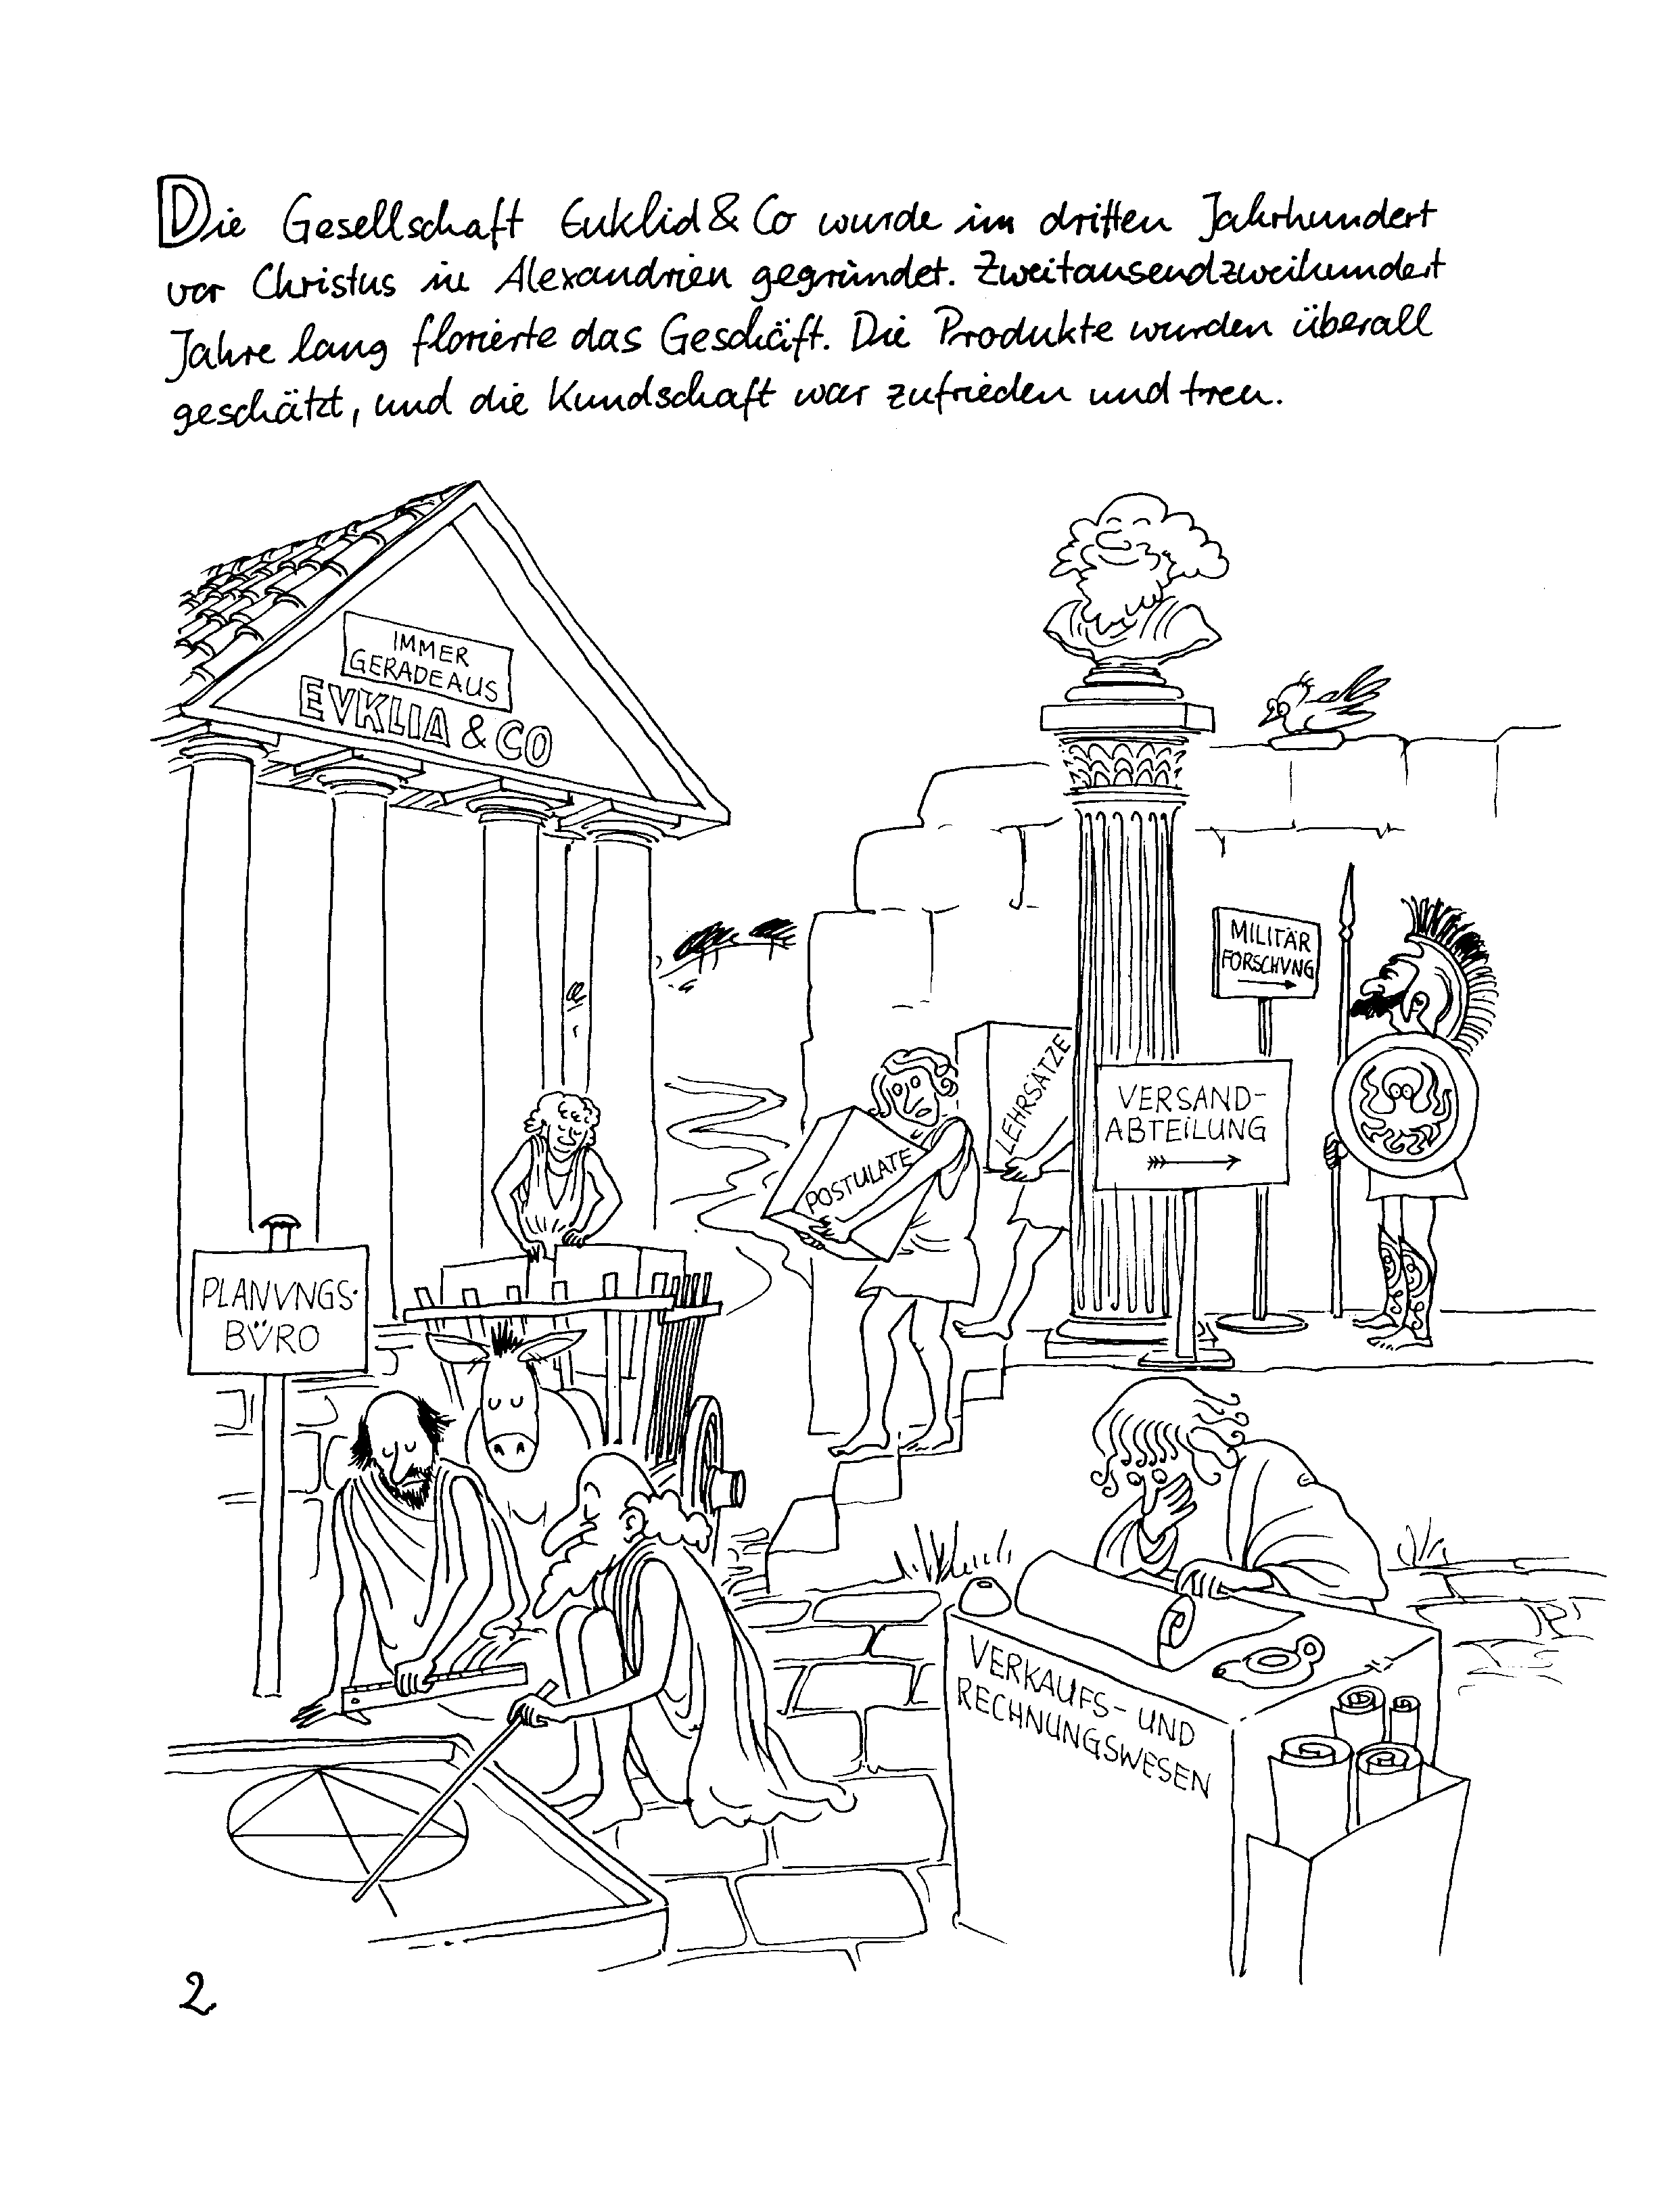 Die Gesellschaft Euklid & Co wurde im dritten Jahrhundert
vor Christus in Alexandrien gegründet. Zweitausendzweihundert
Jahre lang florierte das Geschäft. Die Produkte wurden überall
geschätzt, und die Kundschaft war zufrieden und treu.
IMMER
GERADEAUS
EVKLIΔ & CO
MILITÄR
FORSCHVNG
LEHRSÄTZE
POSTULATE
VERSAND-
ABTEILUNG
PLANVNGS-
BÜRO
VERKAUFS- UND
RECHNUNGSWESEN
2